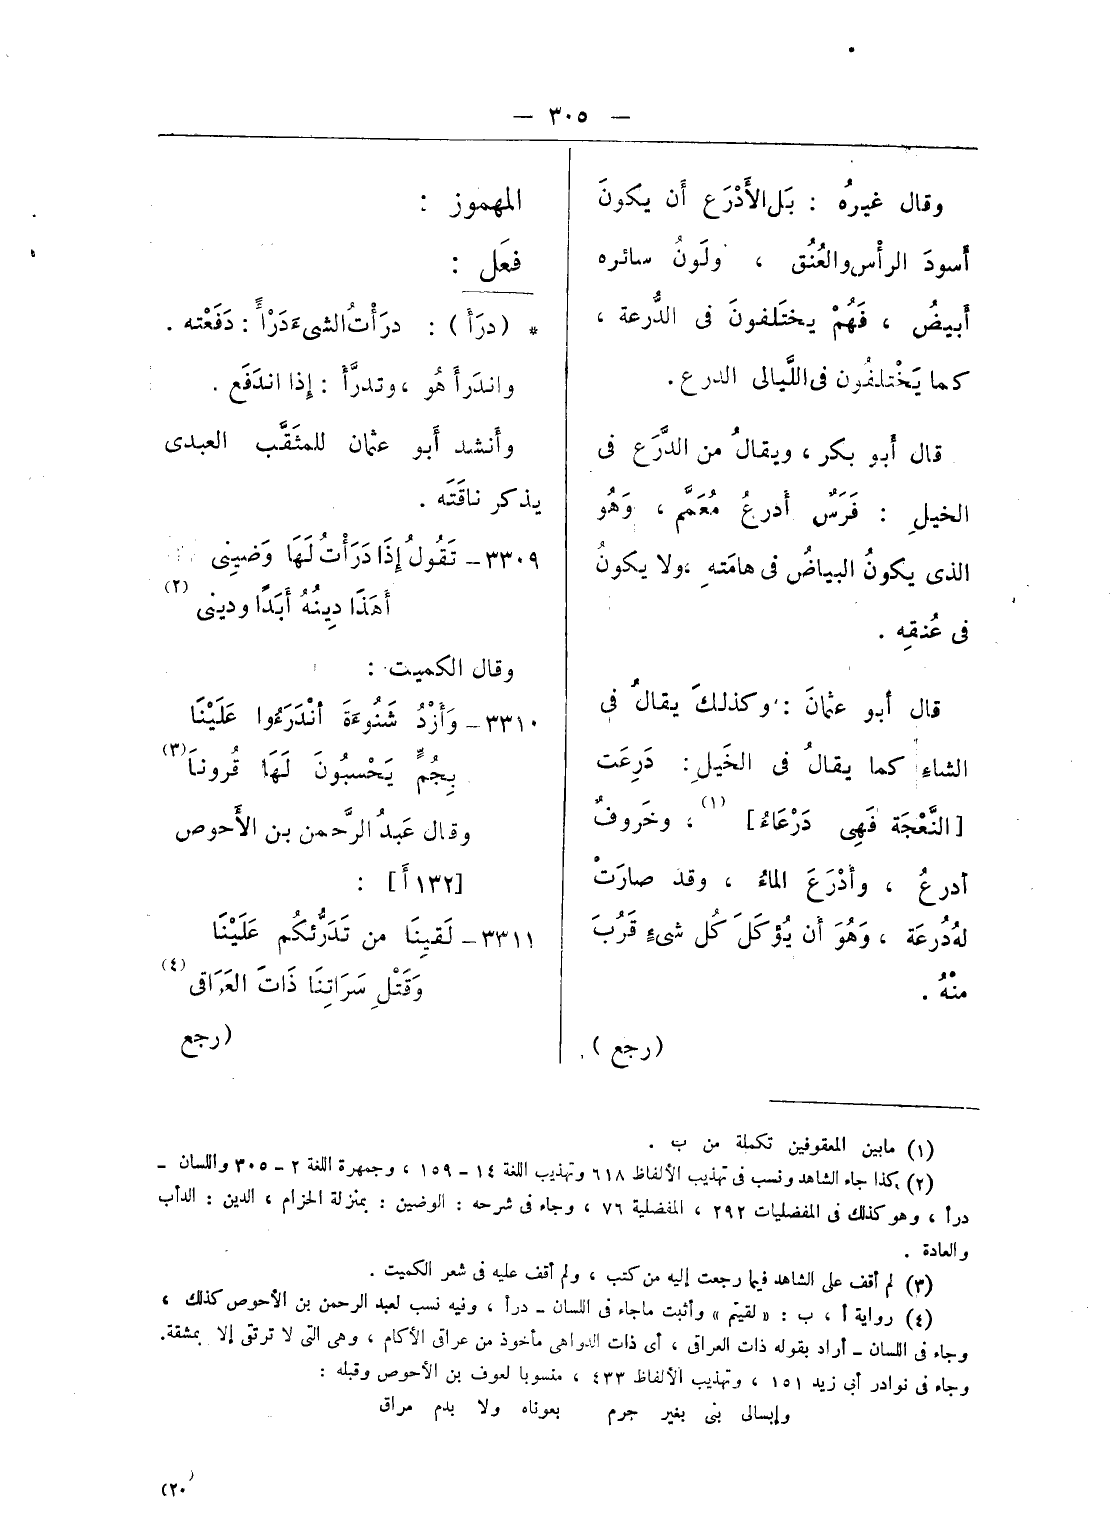 — ٣٠٥ —
وقال غيرهُ : بَل الأَدْرَع أَن يكونَ
أَسودَ الرأْس والعُنُق ، ولَونُ سائره
أَبيضُ ، فَهُمْ يختَلفونَ فى الدُّرعة ،
كما يَخْتلفُون فى اللَّيالى الدرع .
قال أَبو بكر ، ويقالُ من الدَّرَع فى
الخيلِ : فَرَسٌ أَدرعُ مُعَمَّم ، وَهُو
الذى يكونُ البياضُ فى هامَتهِ ، ولا يكونُ
فى عُنقِه .
قال أبو عثمانَ : وكذلكَ يقالُ فى
الشاء كما يقالُ فى الخَيلِ : دَرِعَت
[النَّعْجَة فَهِى دَرْعَاءُ] (١) ، وخَروفٌ
أدرعُ ، وأَدْرَعَ الماءُ ، وقد صارَتْ
لهُ دُرعَة ، وَهُوَ أَن يُؤكَلَ كُل شىءٍ قَرُبَ
منْهُ .
(رجع)
المهموز :
فعَل :
* (درَأ) : درَأْتُ الشىءَ دَرْأً : دَفَعْته .
واندَرأَ هُو ، وتدرَّأَ : إذا اندَفَع .
وأَنشد أَبو عثمان للمثَقَّب العبدى
يذكر ناقَتَه .
٣٣٠٩ – تَقُولُ إذَا دَرَأْتُ لَهَا وَضينِى
أَهَذَا دِينُهُ أَبَدًا ودينى (٢)
وقال الكميت :
٣٣١٠ – وَأزْدُ شَنُوءَةَ انْدَرَءُوا عَلَيْنَا
بِجُمٍّ يَحْسبُونَ لَهَا قُرونَا (٣)
وقال عَبدُ الرَّحمن بن الأَحوص
[١٣٢أ] :
٣٣١١ – لَقينَا من تَدَرُّئكُم عَلَيْنَا
وَقَتْلِ سَرَاتِنَا ذَاتَ العَرَاقى (٤)
(رجع
(١) مابين المعقوفين تكملة من ب .
(٢) كذا جاء الشاهد ونسب فى تهذيب الألفاظ ٦١٨ وتهذيب اللغة ١٤ – ١٥٩ ، وجمهرة اللغة ٢ – ٣٠٥ واللسان –
درأ ، وهو كذلك فى المفضليات ٢٩٢ ، المفضلية ٧٦ ، وجاء فى شرحه : الوضين : بمنزلة الحزام ، الدين : الدأب
والعادة .
(٣) لم أقف على الشاهد فيما رجعت إليه من كتب ، ولم أقف عليه فى شعر الكميت .
(٤) رواية أ ، ب : «لقيتم» وأثبت ماجاء فى اللسان – درأ ، وفيه نسب لعبد الرحمن بن الأحوص كذلك ،
وجاء فى اللسان – أراد بقوله ذات العراقى ، أى ذات الدواهى مأخوذ من عراقى الأكام ، وهى التى لا ترتقى إلا بمشقة.
وجاء فى نوادر أبى زيد ١٥١ ، وتهذيب الألفاظ ٤٣٣ ، منسوبا لعوف بن الأحوص وقبله :
وإبسالى بنى بغير جرم بعوناه ولا بدم مراق
(٢٠)